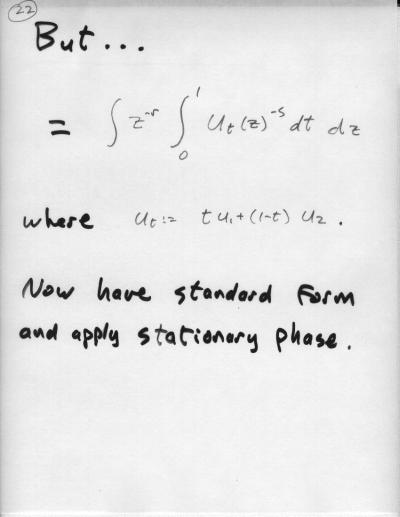 22
But...
= ∫ z^{-r} ∫_0^1 u_t(z)^{-s} dt dz
where u_t := t u_1 + (1-t) u_2 .
Now have standard form
and apply stationary phase.